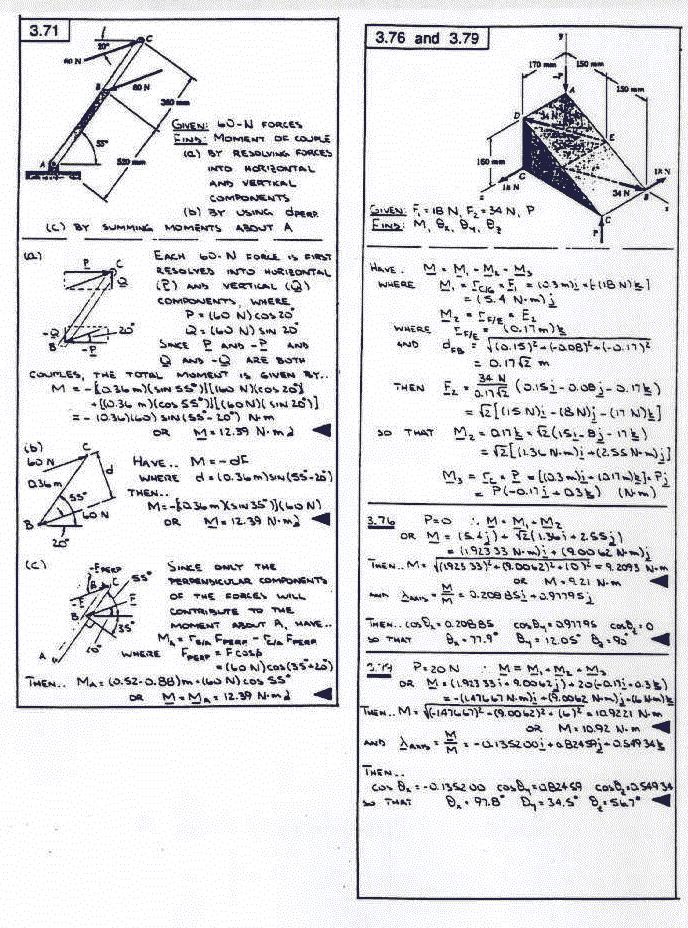 3.71
C
20°
60 N
B
60 N
360 mm
A
55°
520 mm
GIVEN: 60-N FORCES
FIND: MOMENT OF COUPLE
(a) BY RESOLVING FORCES
INTO HORIZONTAL
AND VERTICAL
COMPONENTS
(b) BY USING dPERP.
(c) BY SUMMING MOMENTS ABOUT A
(a)
P
C
Q
-Q
B
-P
20°
EACH 60-N FORCE IS FIRST
RESOLVED INTO HORIZONTAL
(P) AND VERTICAL (Q)
COMPONENTS, WHERE
P = (60 N) COS 20°
Q = (60 N) SIN 20°
SINCE P AND -P AND
Q AND -Q ARE BOTH
COUPLES, THE TOTAL MOMENT IS GIVEN BY..
M = -[(0.36 m)(SIN 55°)][(60 N)(COS 20°)]
+[(0.36 m)(COS 55°)][(60 N)(SIN 20°)]
= -(0.36)(60) SIN(55°-20°) N·m
OR M = 12.39 N·m
(b)
60 N
C
0.36m
d
55°
B
60 N
20°
HAVE.. M = -dF
WHERE d = (0.36m)SIN(55°-20°)
THEN..
M = -[(0.36m)(SIN 35°)](60 N)
OR M = 12.39 N·m
(c)
-FPERP
C
55°
-F
B
F
35°
20°
A
SINCE ONLY THE
PERPENDICULAR COMPONENTS
OF THE FORCES WILL
CONTRIBUTE TO THE
MOMENT ABOUT A, HAVE..
MA = rB/A FPERP - rC/A FPERP
WHERE FPERP = F COSβ
= (60 N) COS(35°+20°)
THEN.. MA = (0.52-0.88)m × (60 N) COS 55°
OR M = MA = 12.39 N·m
3.76 and 3.79
y
170 mm
150 mm
-P
A
150 mm
D
34 N
E
160 mm
G
18 N
z
18 N
34 N
B
x
C
P
GIVEN: F1 = 18 N, F2 = 34 N, P
FIND: M, θx, θy, θz
HAVE.. M = M1 + M2 + M3
WHERE M1 = rC/G × F1 = (0.3 m)i × [-(18 N)k]
= (5.4 N·m)j
M2 = rF/E × F2
WHERE rF/E = (0.17 m)k
AND dFB = √(0.15)²+(-0.08)²+(-0.17)²
= 0.17√2 m
THEN F2 = 34 N/0.17√2 (0.15i - 0.08j - 0.17k)
= √2[(15 N)i - (8 N)j - (17 N)k]
SO THAT M2 = 0.17k × √2(15i - 8j - 17k)
= √2[(1.36 N·m)i + (2.55 N·m)j]
M3 = rC × P = [(0.3m)i + (0.17m)k] × Pj
= P(-0.17i + 0.3k) (N·m)
3.76 P=0 ∴ M = M1 + M2
OR M = (5.4j) + √2(1.36i + 2.55j)
= (1.92333 N·m)i + (9.0062 N·m)j
THEN.. M = √(1.92333)²+(9.0062)²+(0)² = 9.2093 N·m
OR M = 9.21 N·m
AND λAXIS = M/M = 0.20885i + 0.97795j
THEN.. COSθx = 0.20885 COSθy = 0.97795 COSθz = 0
SO THAT θx = 77.9° θy = 12.05° θz = 90°
3.79 P = 20 N ∴ M = M1 + M2 + M3
OR M = (1.92333i + 9.0062j) + 20(-0.17i + 0.3k)
= -(1.47667 N·m)i + (9.0062 N·m)j + (6 N·m)k
THEN.. M = √(-1.47667)²+(9.0062)²+(6)² = 10.9221 N·m
OR M = 10.92 N·m
AND λAXIS = M/M = -0.135200i + 0.82459j + 0.54934k
THEN..
COSθx = -0.135200 COSθy = 0.82459 COSθz = 0.54934
SO THAT θx = 97.8° θy = 34.5° θz = 56.7°